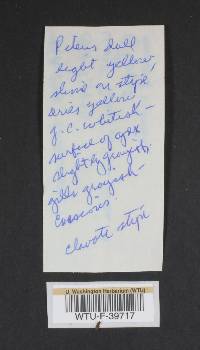 Pileus dull
light yellow,
slime on stipe
dries yellow
f.c. whitish -
surface of apex
slightly grayish.
gills grayish -
clavate stipe
U. Washington Herbarium (WTU)
WTU-F-39717